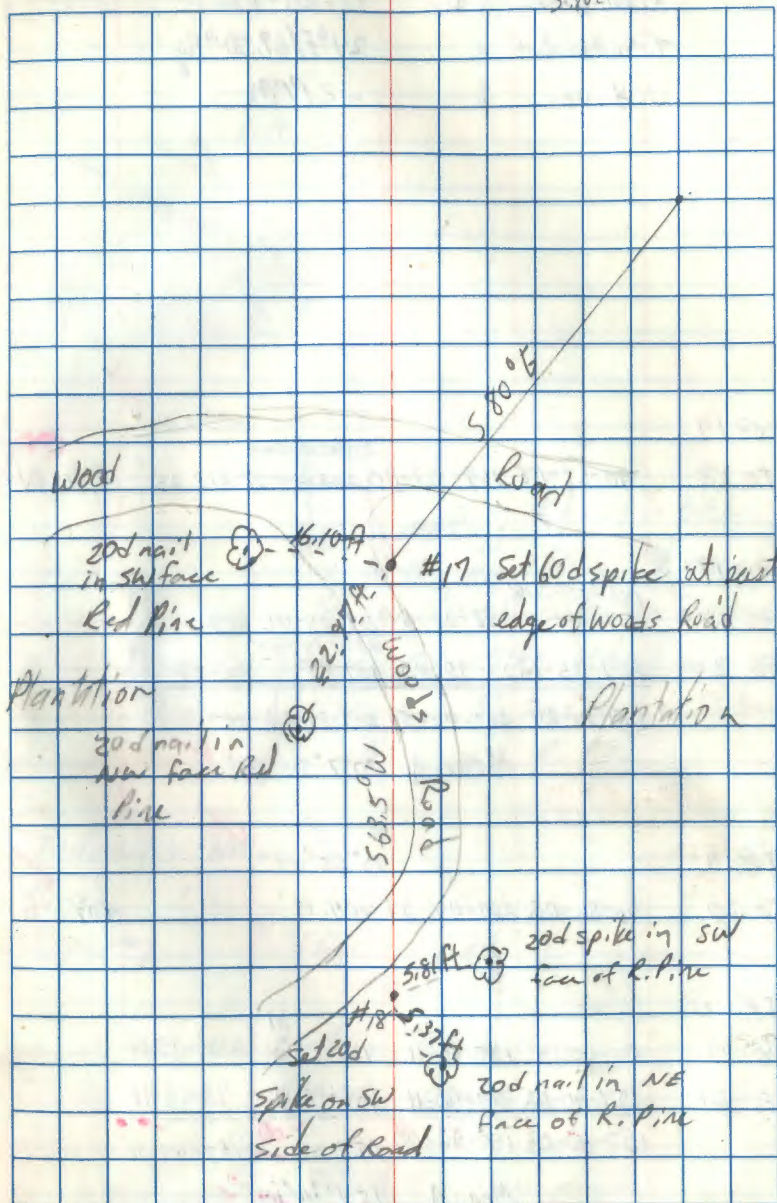 S 80° E
Wood
Road
16.10 ft
20d nail
in SW face
Red Pine
#17 Set 60d spike at east
edge of Woods Road
22.97 ft
Woods
Road
Plantation
Plantation
20d nail in
NW face Red
Pine
S 63.5° W
20d spike in SW
face of R. Pine
5.81 ft
#18
5.37 ft
Set 20d
Spike on SW
Side of Road
20d nail in NE
face of R. Pine